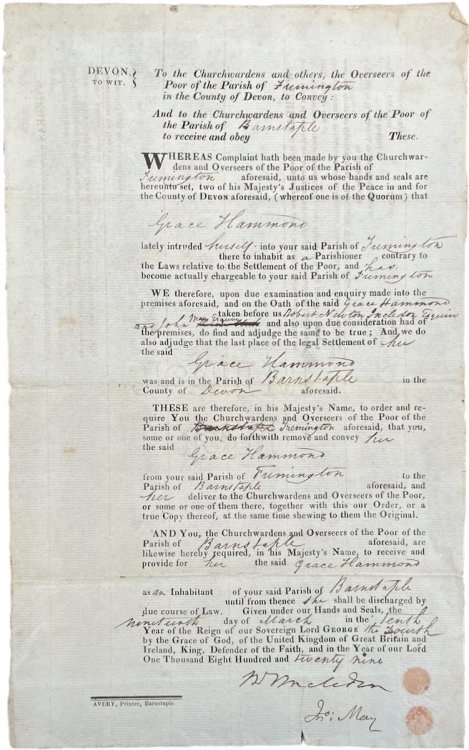 DEVON, TO WIT.
To the Churchwardens and others, the Overseers of the
Poor of the Parish of Fremington
in the County of Devon, to Convey:
And to the Churchwardens and Overseers of the Poor of
the Parish of Barnstaple
to receive and obey These.
WHEREAS Complaint hath been made by you the Churchwar-
dens and Overseers of the Poor of the Parish of
Fremington aforesaid, unto us whose hands and seals are
hereunto set, two of his Majesty's Justices of the Peace in and for
the County of DEVON aforesaid, (whereof one is of the Quorum) that
Grace Hammond
lately intruded herself into your said Parish of Fremington
there to inhabit as a Parishioner contrary to
the Laws relative to the Settlement of the Poor, and has
become actually chargeable to your said Parish of Fremington
WE therefore, upon due examination and enquiry made into the
premises aforesaid, and on the Oath of the said Grace Hammond
taken before us Robert Newton Incledon Esquire
and John May Esquire and also upon due consideration had of
the premises, do find and adjudge the same to be true; And we do
also adjudge that the last place of the legal Settlement of her
the said
Grace Hammond
was and is in the Parish of Barnstaple in the
County of Devon aforesaid.
THESE are therefore, in his Majesty's Name, to order and re-
quire You the Churchwardens and Overseers of the Poor of the
Parish of Barnstaple Fremington aforesaid, that you,
some or one of you, do forthwith remove and convey her
the said
Grace Hammond
from your said Parish of Fremington to the
Parish of Barnstaple aforesaid, and
her deliver to the Churchwardens and Overseers of the Poor,
or some or one of them there, together with this our Order, or a
true Copy thereof, at the same time shewing to them the Original.
AND You, the Churchwardens and Overseers of the Poor of the
Parish of Barnstaple aforesaid, are
likewise hereby required, in his Majesty's Name, to receive and
provide for her the said Grace Hammond
as an Inhabitant of your said Parish of Barnstaple
until from thence she shall be discharged by
due course of Law. Given under our Hands and Seals, the
nineteenth day of March in the tenth
Year of the Reign of our Sovereign Lord GEORGE the Fourth
by the Grace of God, of the United Kingdom of Great Britain and
Ireland, King, Defender of the Faith, and in the Year of our Lord
One Thousand Eight Hundred and twenty nine
Incledon
Jno: May
AVERY, Printer, Barnstaple.